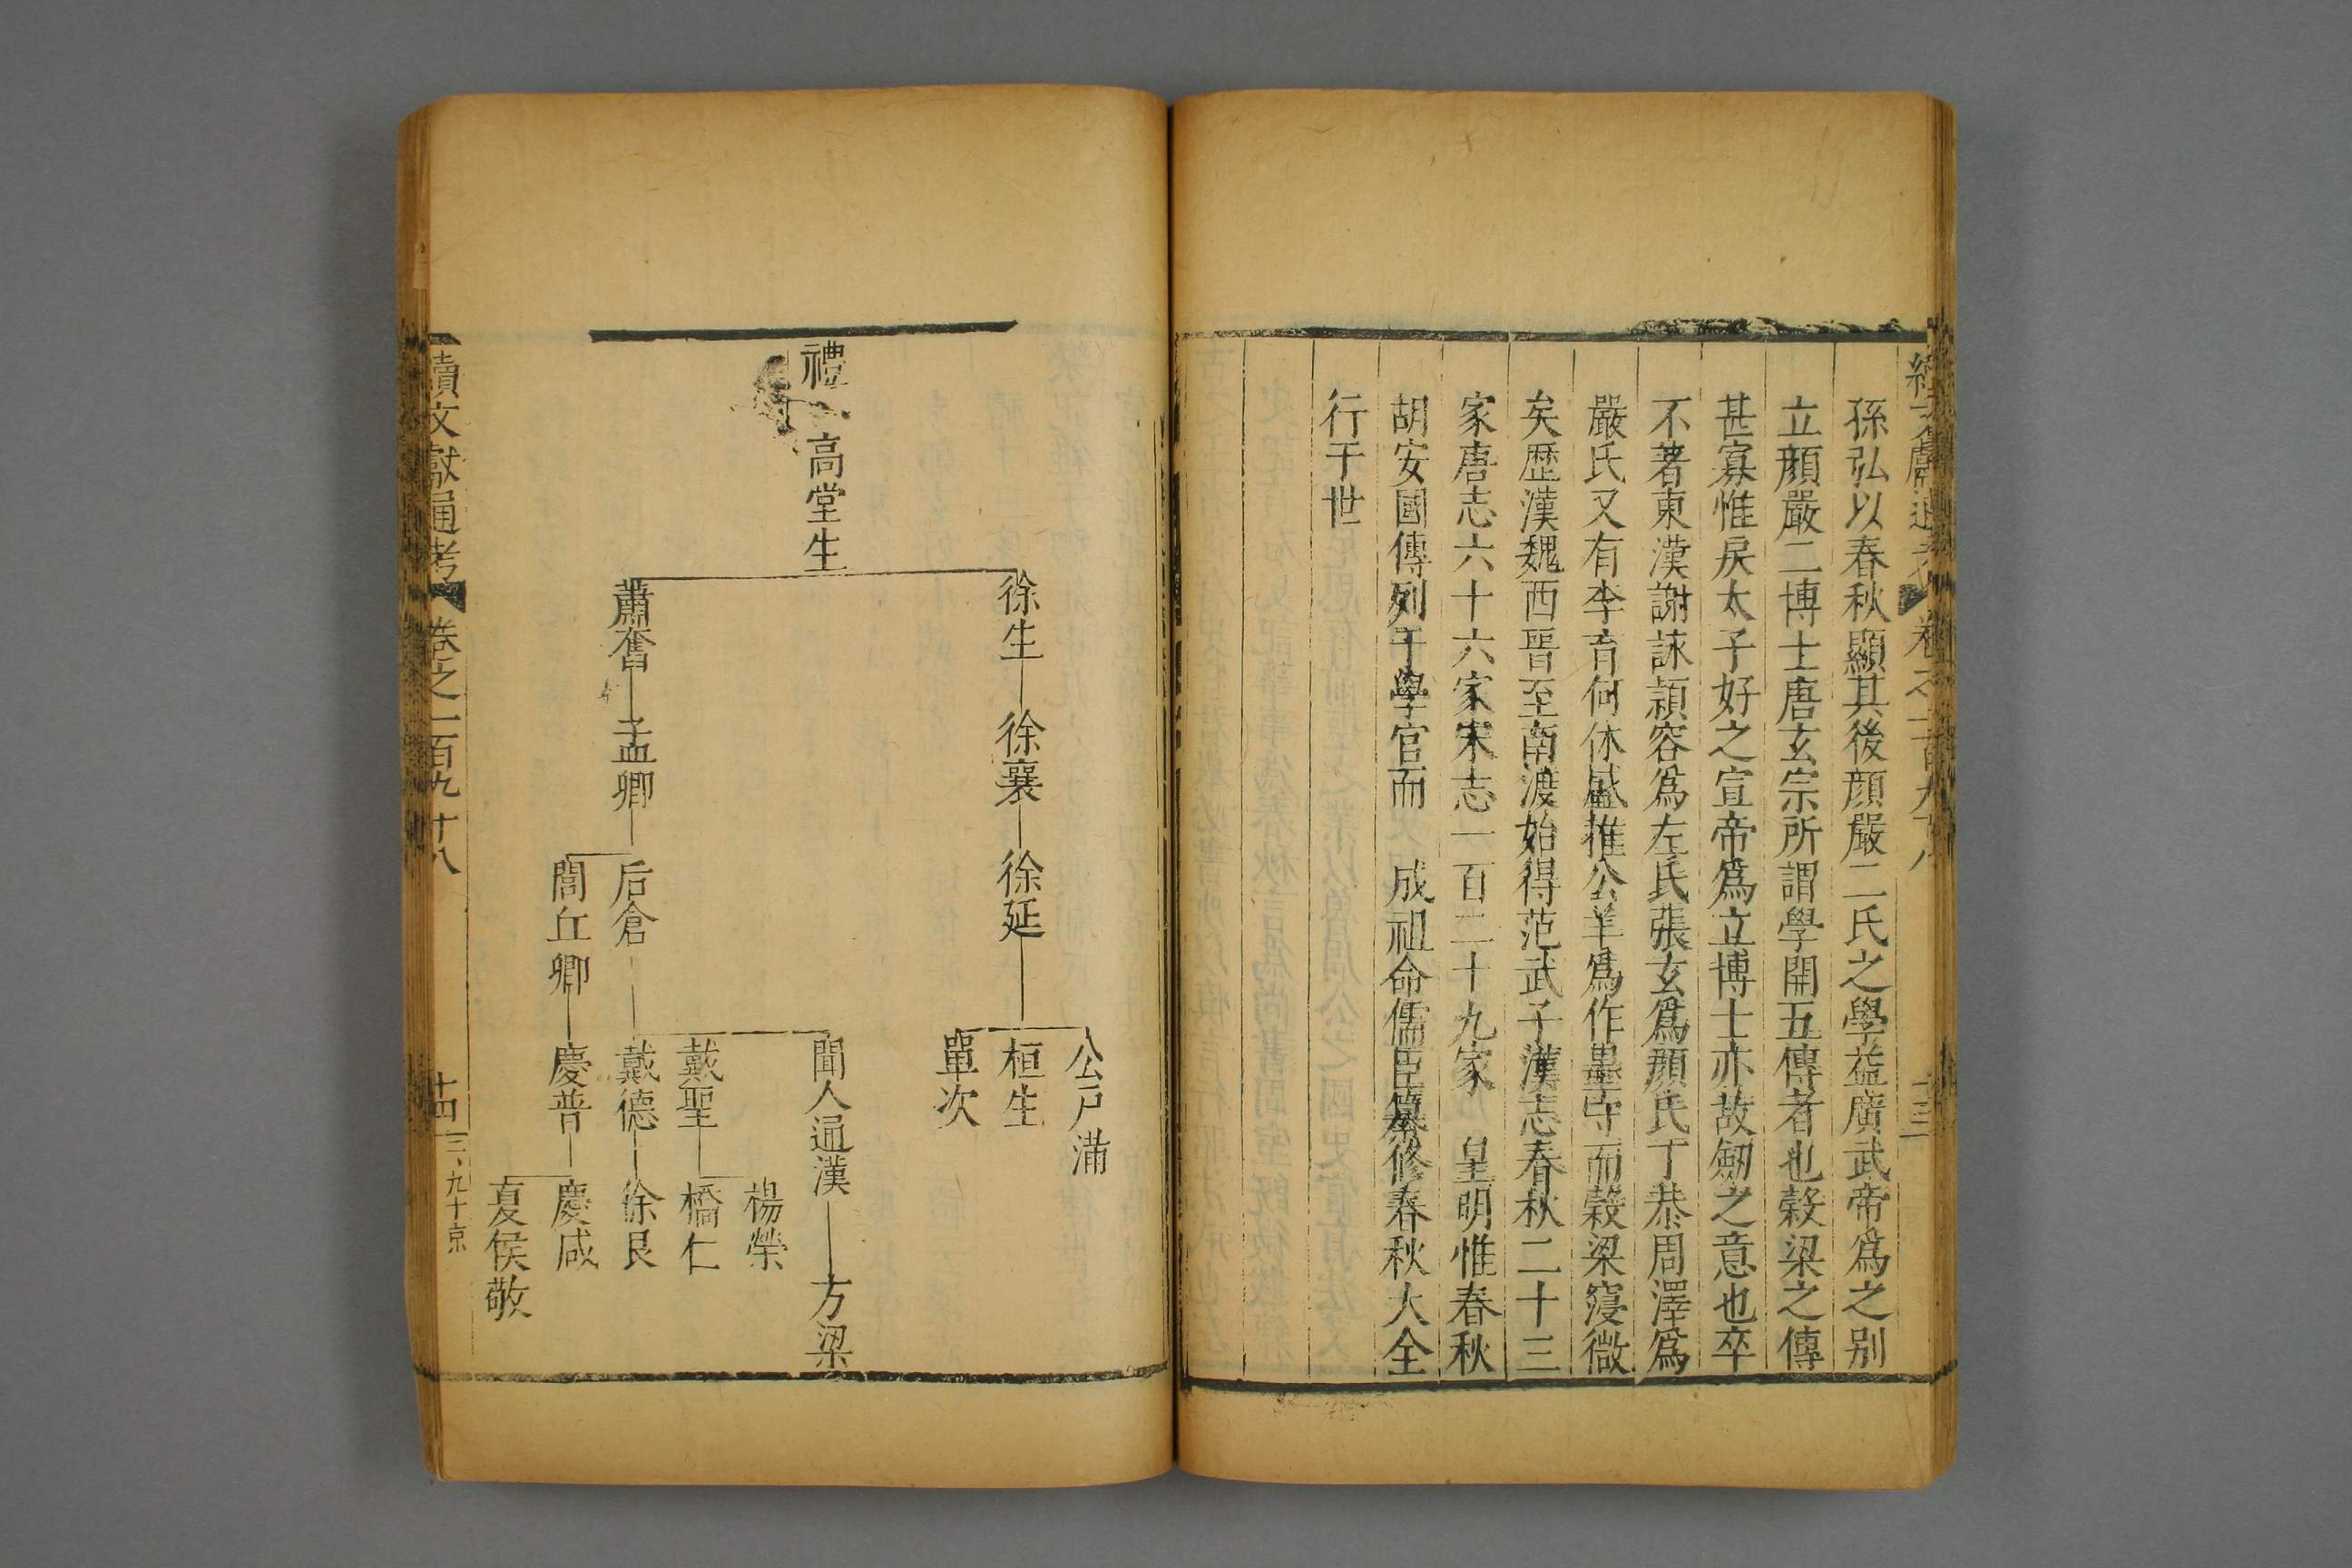 孫弘以春秋顯其後顏嚴二氏之學益廣武帝爲之别
立顏嚴二博士唐玄宗所謂學開五傳者也穀梁之傳
甚寡惟戾太子好之宣帝爲立博士亦故劒之意也卒
不著東漢謝該頴容爲左氏張玄爲顏氏丁恭周澤爲
嚴氏又有李育何休盛推公羊爲作墨守而穀梁寖微
矣歷漢魏西晋至南渡始得范武子漢志春秋二十三
家唐志六十六家宋志一百二十九家 皇明惟春秋
胡安國傳列于學官而 成祖命儒臣纂修春秋大全
行于世
禮
高堂生
徐生 徐襄 徐延
公戶滿
桓生
單次
蕭奮 孟卿
后倉
聞人通漢 方梁
戴聖
楊榮
橋仁
戴德 徐良
閭丘卿 慶普
慶咸
夏侯敬
續文獻通考 卷之一百九十八 十四 三、九十京